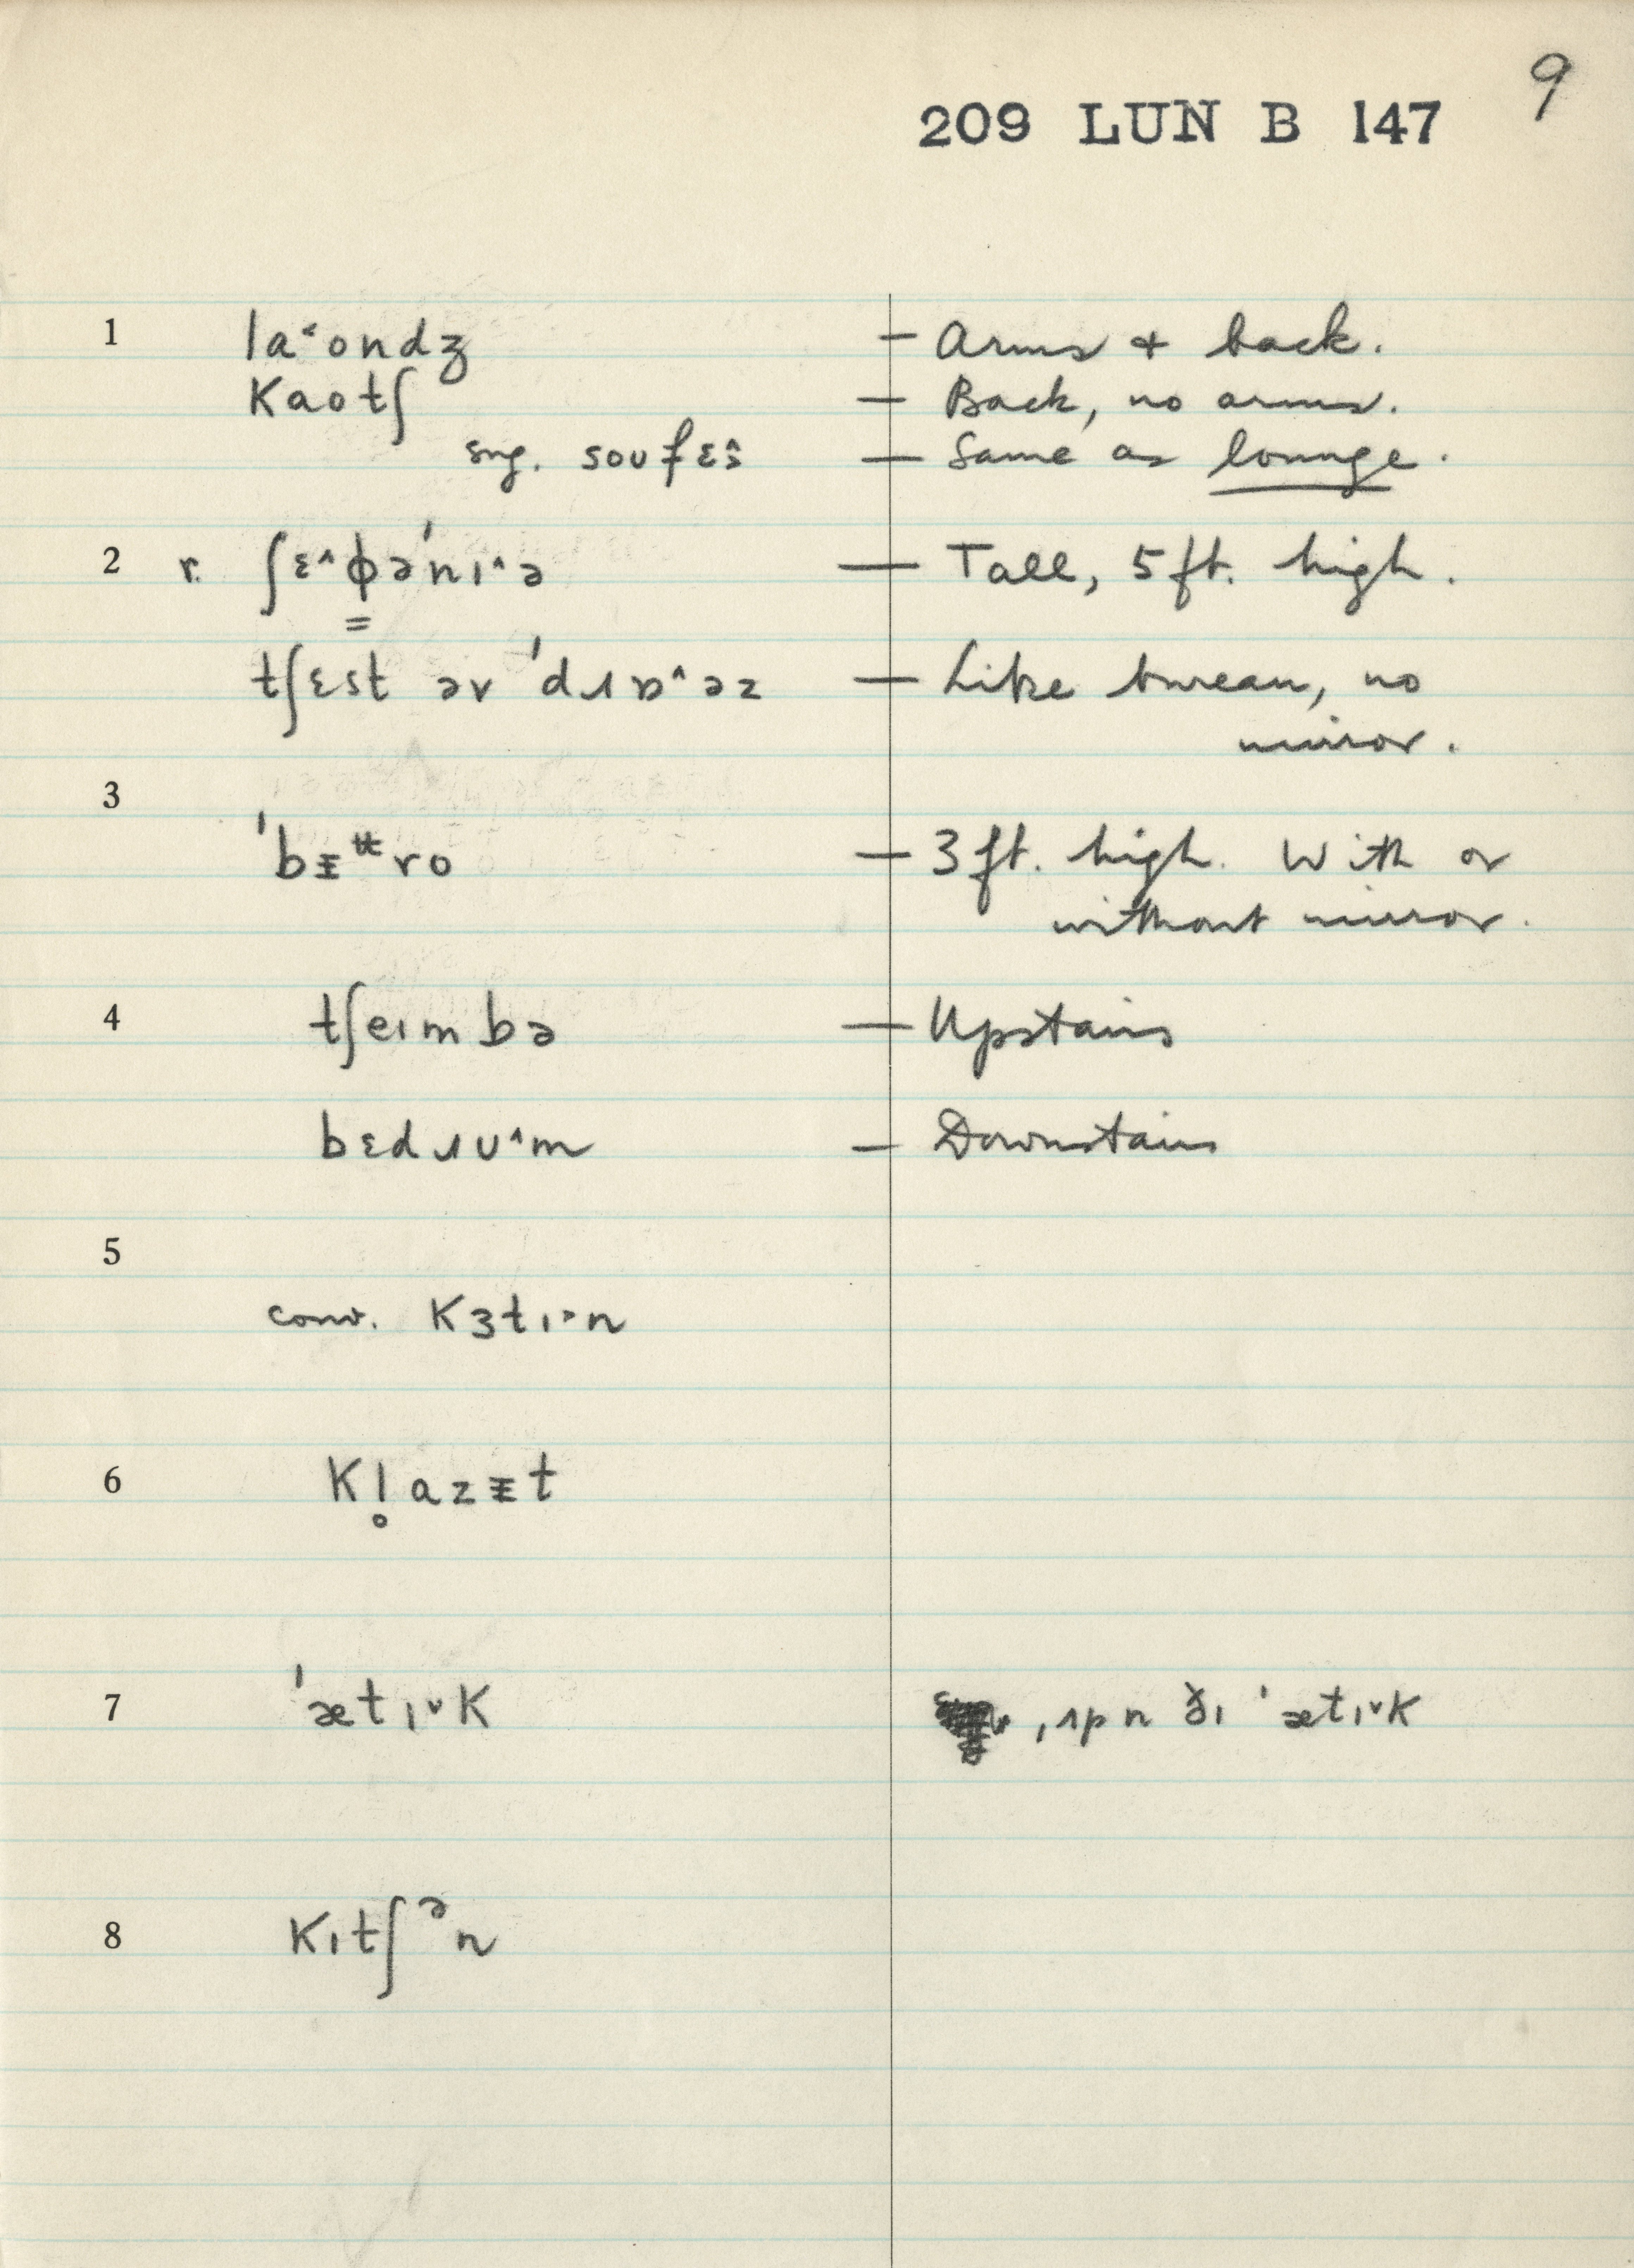 9
209 LUN B 147
1 la˂ondʒ — Arms & back.
kaotʃ — Back, no arms.
sug. soʊfɛ^s — Same as lounge.
2 r. ʃɛ^ɸəˈnɪ^ə — Tall, 5 ft. high.
tʃɛst əv ˈdɹɒ^əz — Like bureau, no
mirror.
3
ˈbᵻʉro — 3 ft. high. With or
without mirror.
4 tʃeɪmbə — Upstairs
bɛdɹʊ^m — Downstairs
5
conv. kɜtɪ˃n
6 kl̥azᵻt
7 ˈætɪ˅k ˌɪp n ðɪ ˈætɪ˅k
8 kɪtʃᵊn